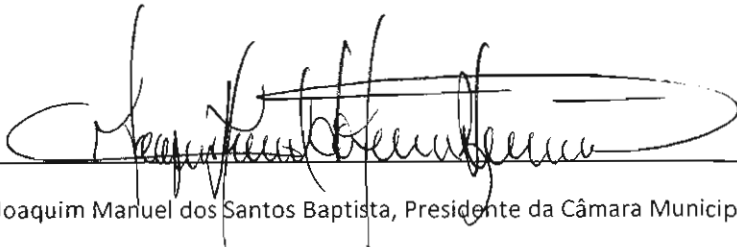 Joaquim Manuel dos Santos Baptista, Presidente da Câmara Municip